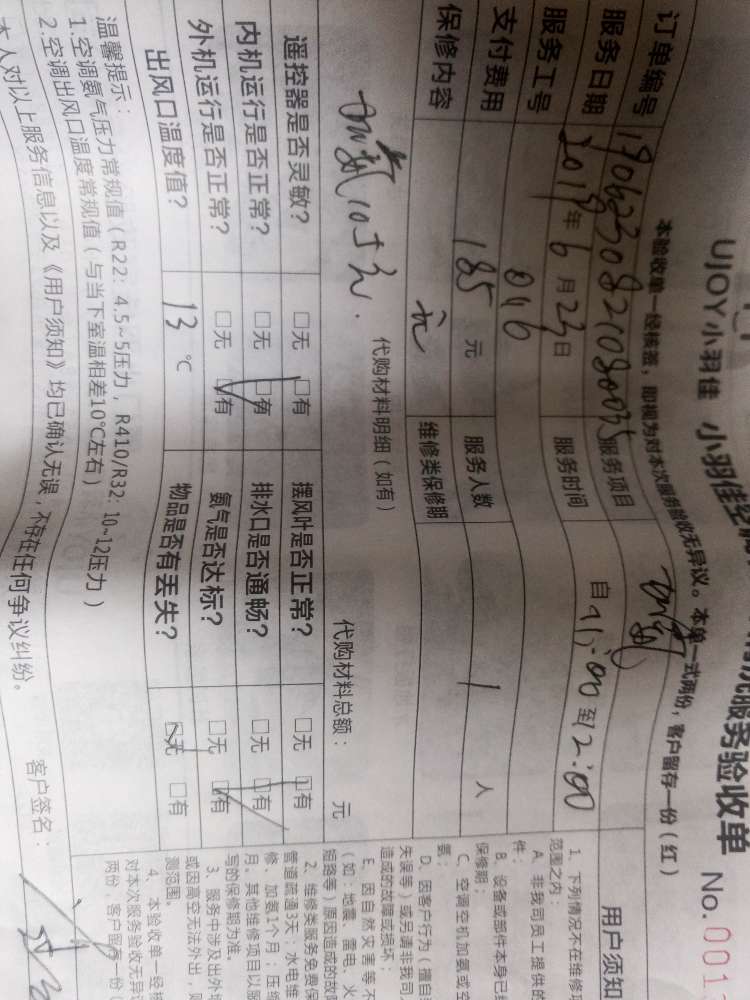 UJOY小羽佳 小羽佳 服务验收单 No.001
本验收单一经核盖，即视为对本次服务验收无异议。本单一式两份，客户留存一份（红）
订单编号 服务项目 加氟
服务日期 2019年6月23日 服务时间 自11:00至12:00
服务工号 016
支付费用 185元 服务人数 1人
保修内容 无 维修类保修期
代购材料明细（如有） 代购材料总额： 元
加氟10
遥控器是否灵敏？ □无 □有 摆风叶是否正常？ □无 □有
内机运行是否正常？ □无 □有 排水口是否通畅？ □无 □有
外机运行是否正常？ □无 □有 氨气是否达标？ □无 □有
出风口温度值？ 13℃ 物品是否有丢失？ □无 □有
温馨提示：
1.空调氨气压力常规值（R22：4.5~5压力，R410/R32：10~12压力）
2.空调出风口温度常规值（与当下室温相差10℃左右）
本人对以上服务信息以及《用户须知》均已确认无误，不存在任何争议纠纷。 客户签名：
用户须知
1、下列情况不在维修项
范围之内：
A、非我司员工提供的
件；
B、设备或部件本身已
保修期；
C、空调空机加氨或空
氨；
D、因客户行为（擅自
失误等）或另请非我司
造成的故障或损坏；
E、因自然灾害等不
（如：地震、雷电、火
短路等）原因造成的故
2、维修类服务免费保
管道疏通3天；水电维
修、加氨1个月；压缩
月。其他维修项目以服
写的保修期为准。
3、服务中涉及出外墙
或因高空无法外出，
测范围。
4、本验收单一经核
对本次服务验收无异议
两份，客户留存一份（